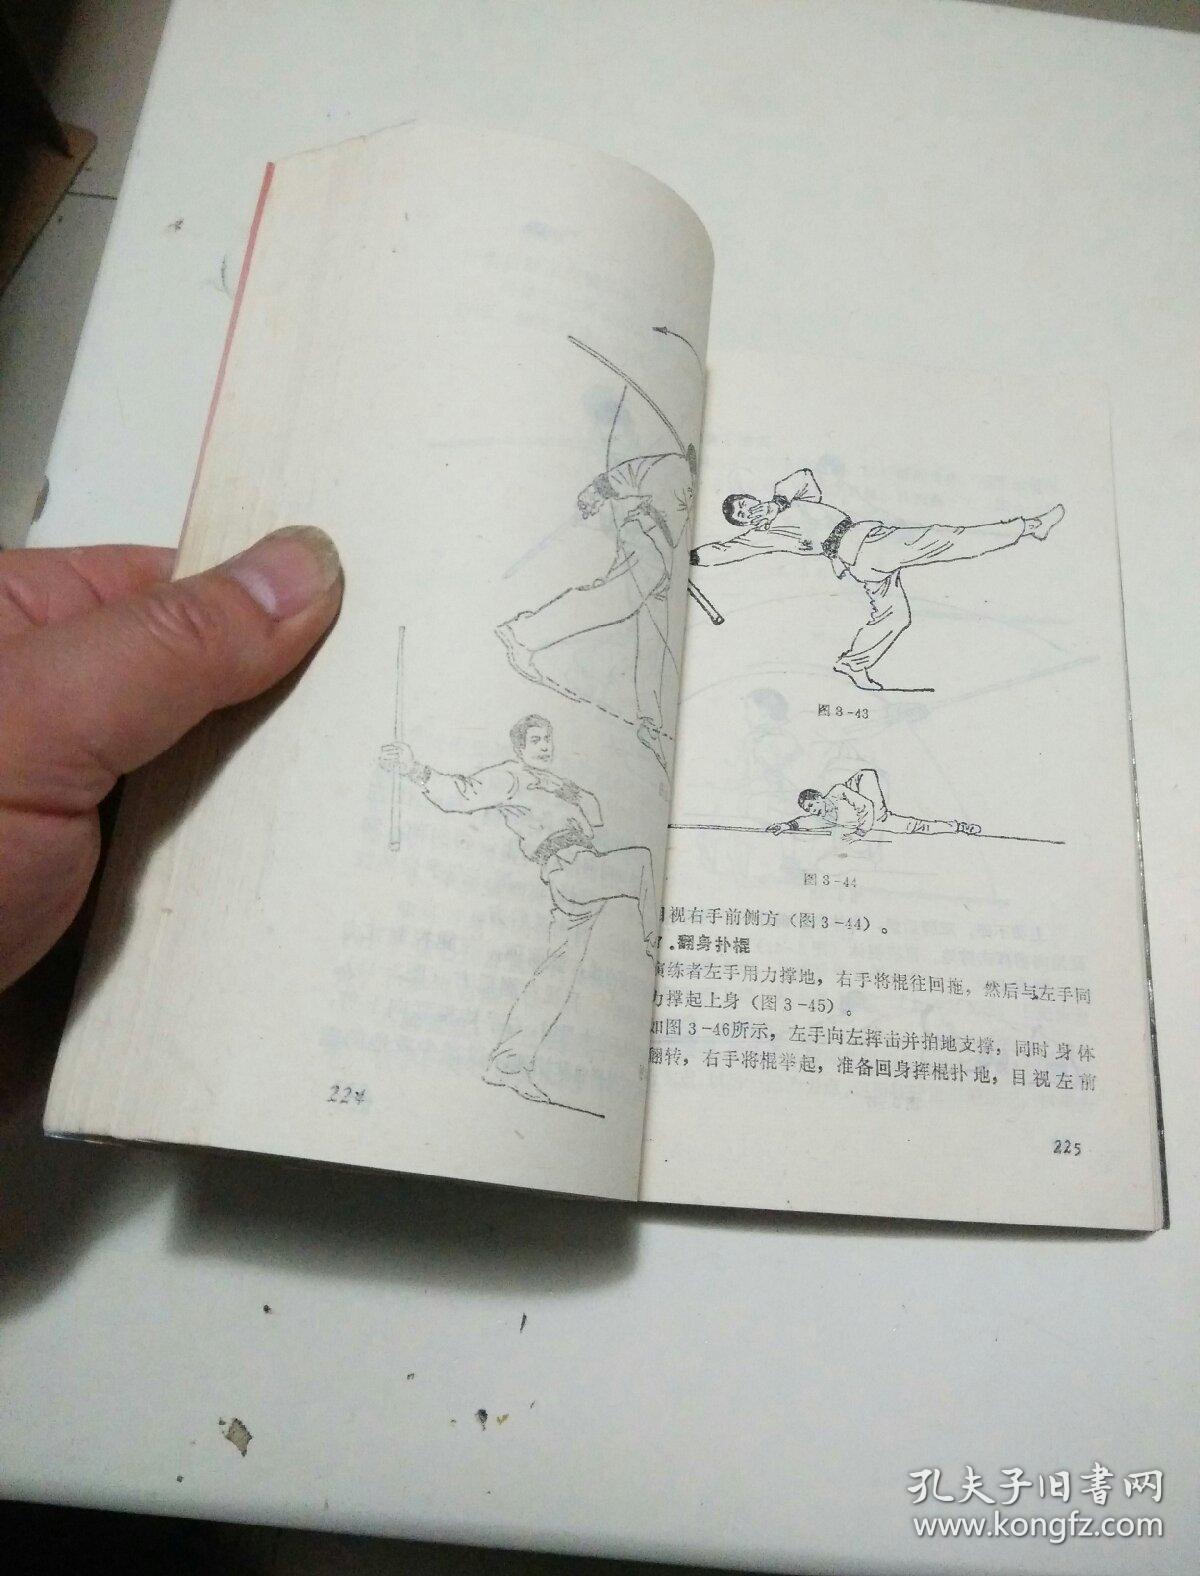 224
图3-43
图3-44
目视右手前侧方（图3-44）。
.翻身扑棍
演练者左手用力撑地，右手将棍往回拖，然后与左手同
力撑起上身（图3-45）。
如图3-46所示，左手向左挥击并拍地支撑，同时身体
翻转，右手将棍举起，准备回身摔棍扑地，目视左前
225
孔夫子旧书网
www.kongfz.com